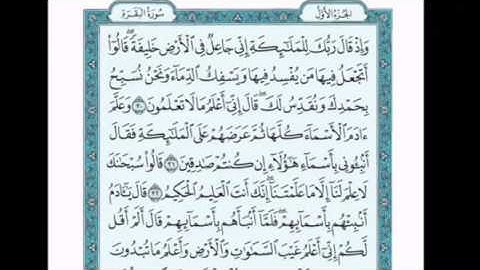 الجزء الأول
سورة البقرة
وَإِذْ قَالَ رَبُّكَ لِلْمَلَٰٓئِكَةِ إِنِّى جَاعِلٌ فِى ٱلْأَرْضِ خَلِيفَةً ۖ قَالُوٓا۟
أَتَجْعَلُ فِيهَا مَن يُفْسِدُ فِيهَا وَيَسْفِكُ ٱلدِّمَآءَ وَنَحْنُ نُسَبِّحُ
بِحَمْدِكَ وَنُقَدِّسُ لَكَ ۖ قَالَ إِنِّىٓ أَعْلَمُ مَا لَا تَعْلَمُونَ ٣٠ وَعَلَّمَ
ءَادَمَ ٱلْأَسْمَآءَ كُلَّهَا ثُمَّ عَرَضَهُمْ عَلَى ٱلْمَلَٰٓئِكَةِ فَقَالَ
أَنۢبِـُٔونِى بِأَسْمَآءِ هَٰٓؤُلَآءِ إِن كُنتُمْ صَٰدِقِينَ ٣١ قَالُوا۟ سُبْحَٰنَكَ
لَا عِلْمَ لَنَآ إِلَّا مَا عَلَّمْتَنَآ ۖ إِنَّكَ أَنتَ ٱلْعَلِيمُ ٱلْحَكِيمُ ٣٢ قَالَ يَٰٓـَٔادَمُ
أَنۢبِئْهُم بِأَسْمَآئِهِمْ ۖ فَلَمَّآ أَنۢبَأَهُم بِأَسْمَآئِهِمْ قَالَ أَلَمْ أَقُل
لَّكُمْ إِنِّىٓ أَعْلَمُ غَيْبَ ٱلسَّمَٰوَٰتِ وَٱلْأَرْضِ وَأَعْلَمُ مَا تُبْدُونَ